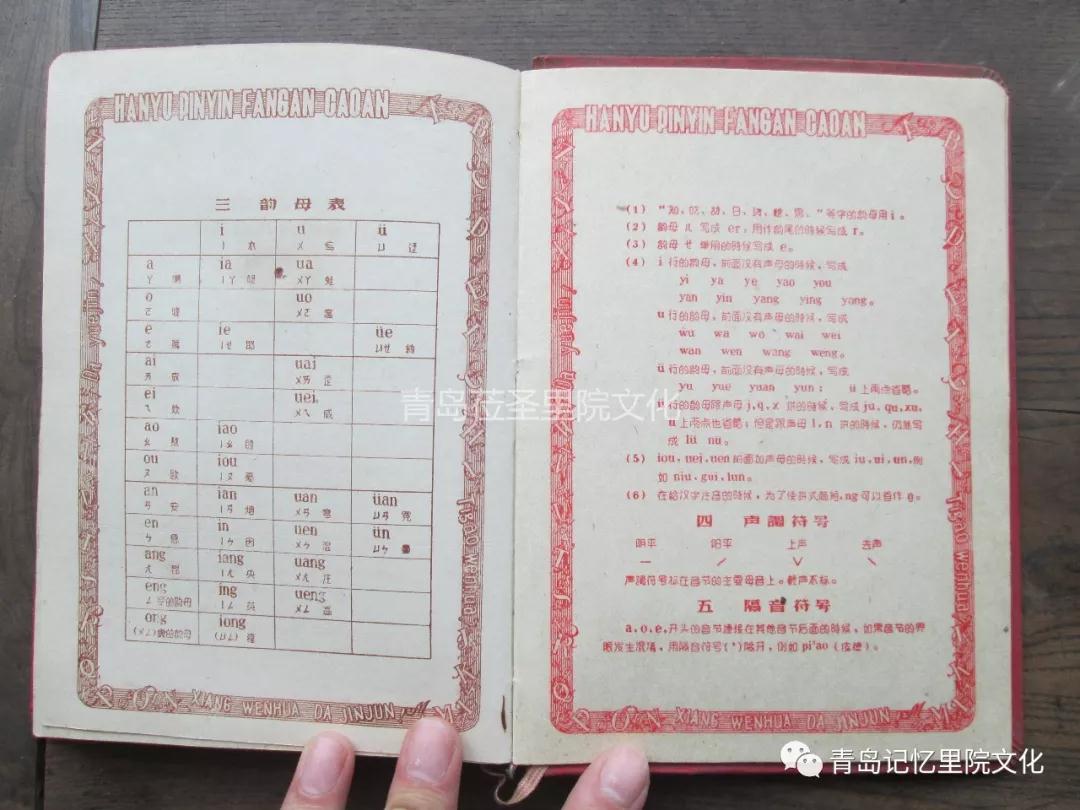 HANYU PINYIN FANGAN CAOAN
三 韵 母 表
i u ü
ㄧ 衣 ㄨ 乌 ㄩ 迂
a ia ua
ㄚ ㄧㄚ ㄨㄚ 蛙
o uo
ㄛ ㄨㄛ 窩
e ie üe
ㄜ ㄧㄝ ㄩㄝ
ai uai
ㄞ ㄨㄞ 歪
ei uei
ㄟ 欸 ㄨㄟ 威
ao iao
ㄠ 熬 ㄧㄠ
ou iou
ㄡ 歐 ㄧㄡ 憂
an ian uan üan
ㄢ 安 ㄧㄢ 烟 ㄨㄢ 弯 ㄩㄢ 冤
en in uen ün
ㄣ 恩 ㄧㄣ 因 ㄨㄣ 溫 ㄩㄣ
ang iang uang
ㄤ ㄧㄤ 央 ㄨㄤ 汪
eng ing ueng
ㄥ 的韵母 ㄧㄥ 英 ㄨㄥ 翁
ong iong
(ㄨㄥ) 的韵母 ㄩㄥ 雍
XIANG WENHUA DA JINJUN
HANYU PINYIN FANGAN CAOAN
(1) “知、吃、詩、日、資、雌、思、”等字的韵母用 i。
(2) 韵母ㄦ 写成 er, 用作韵尾的時候写成 r。
(3) 韵母ㄝ 单用的時候写成 e。
(4) i 行的韵母, 前面没有声母的時候, 写成
yi ya ye yao you
yan yin yang ying yong。
u 行的韵母, 前面没有声母的時候, 写成
wu wa wo wai wei
wan wen wang weng。
ü 行的韵母, 前面没有声母的時候, 写成
yu yue yuan yun; ü 上兩点省略。
ü 行的韵母跟声母 j, q, x 拼的時候, 写成 ju, qu, xu,
ü 上兩点也省略; 但是跟声母 l, n 拼的時候, 仍然写
成 lü nü。
(5) iou, uei, uen 前面加声母的時候, 写成 iu, ui, un, 例
如 niu, gui, lun。
(6) 在給汉字注音的時候, 为了使拼式簡短, ng 可以省作 ŋ。
四 声調符号
阴平 阳平 上声 去声
— ˊ ˇ ˋ
声調符号标在音节的主要母音上。輕声不标。
五 隔音符号
a, o, e, 开头的音节連接在其他音节后面的時候, 如果音节的界
限发生混淆, 用隔音符号(’)隔开, 例如 pi’ao (皮襖)。
Tigao wenhua
XIANG WENHUA DA JINJUN
青岛莅圣里院文化
青岛记忆里院文化